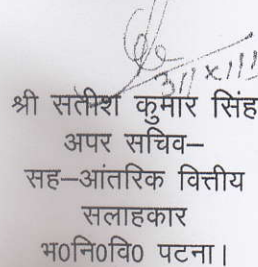 श्री सतीश कुमार सिंह
अपर सचिव–
सह–आंतरिक वित्तीय
सलाहकार
भ०नि०वि० पटना।